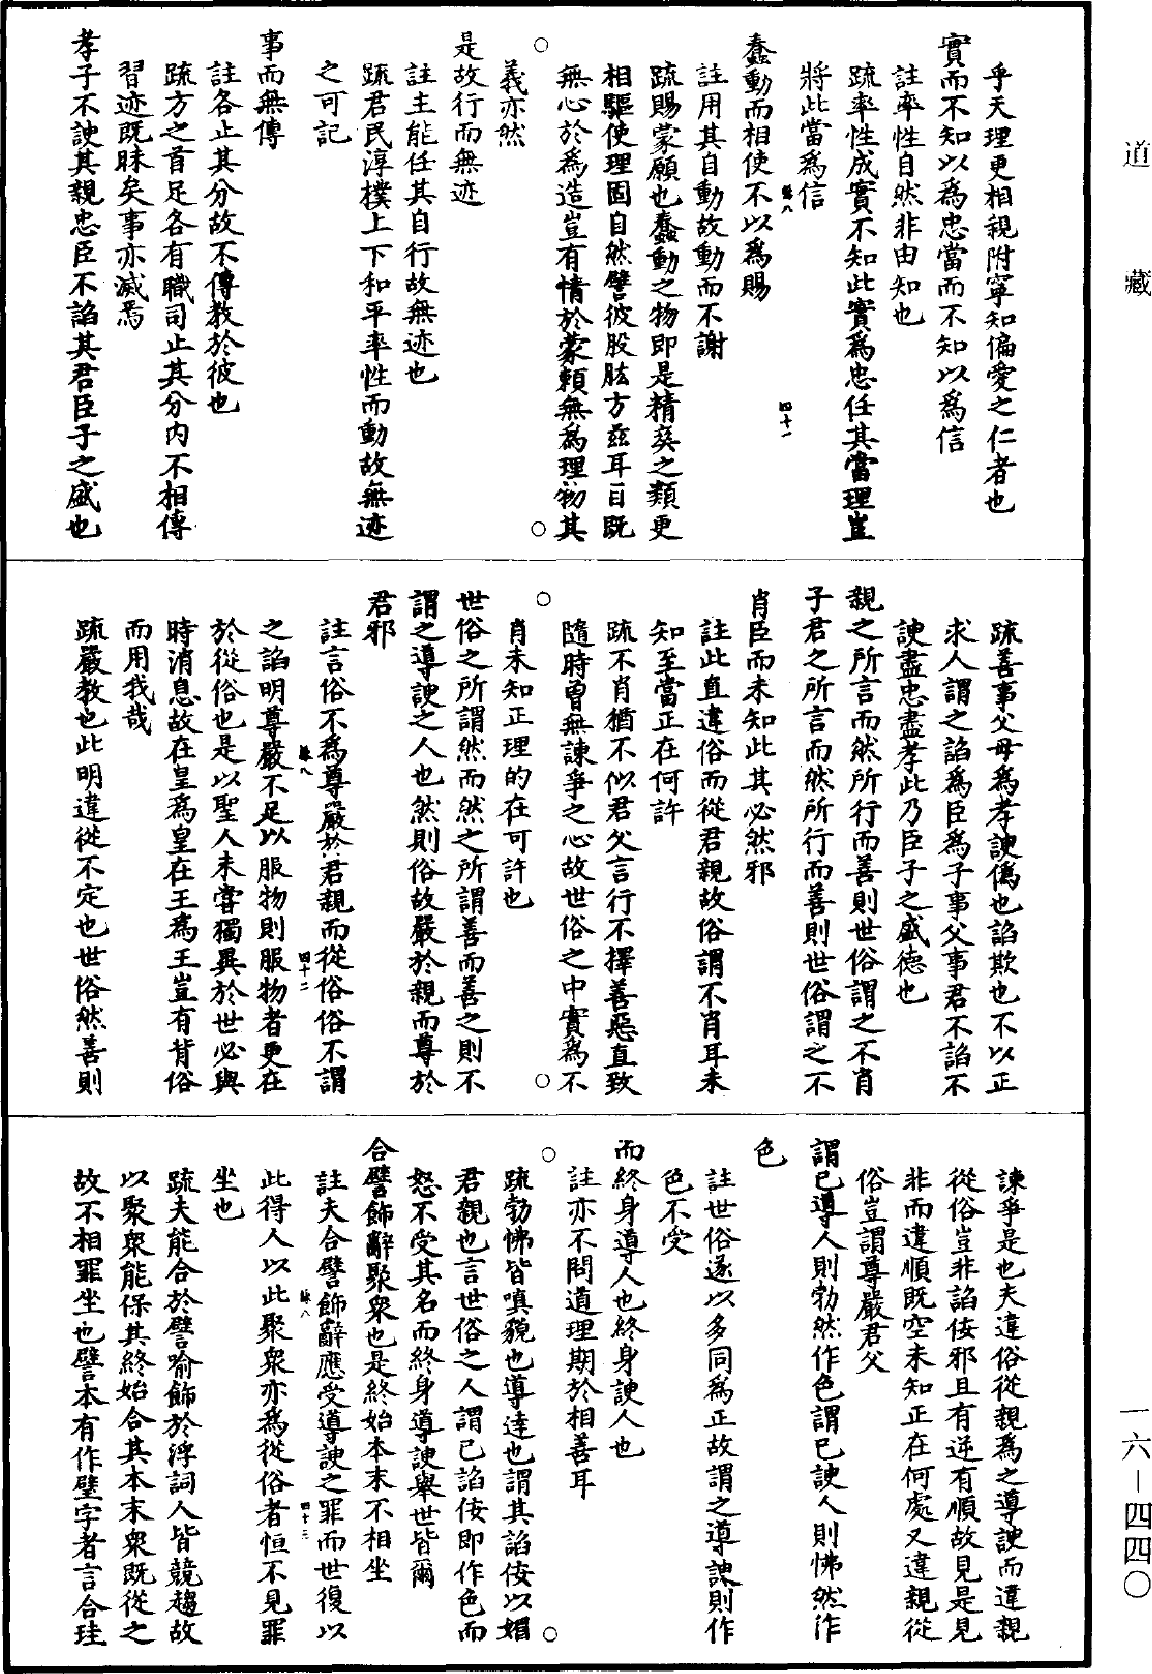 道藏
乎天理更相親附寧知偏愛之仁者也
實而不知以為忠當而不知以為信
註率性自然非由知也
疏率性成實不知此實為忠任其當理豈
將此當為信
蠢動而相使不以為賜
註用其自動故動而不謝
疏賜蒙願也蠢動之物即是精爽之類更
相驅使理固自然譬彼股肱方兹耳目既
無心於為造豈有情於蒙賴無為理物其
義亦然
是故行而無迹
註主能任其自行故無迹也
疏君民淳樸上下和平率性而動故無迹
之可記
事而無傳
註各止其分故不傳教於彼也
疏方之首足各有職司止其分內不相傳
習迹既昧矣事亦滅焉
孝子不諛其親忠臣不諂其君臣子之盛也
四十一
疏善事父母為孝諛偽也諂欺也不以正
求人謂之諂為臣為子事父事君不諂不
諛盡忠盡孝此乃臣子之盛德也
親之所言而然所行而善則世俗謂之不肖
子君之所言而然所行而善則世俗謂之不
肖臣而未知此其必然邪
註此直違俗而從君親故俗謂不肖耳未
知至當正在何許
疏不肖猶不似君父言行不擇善惡直致
隨時曾無諫爭之心故世俗之中實為不
肖未知正理的在可許也
世俗之所謂然而然之所謂善而善之則不
謂之導諛之人也然則俗故嚴於親而尊於
君邪
註言俗不為尊嚴於君親而從俗俗不謂
之諂明尊嚴不足以服物則服物者更在
於從俗也是以聖人未嘗獨異於世必與
時消息故在皇為皇在王為王豈有背俗
而用我哉
疏嚴敎也此明違從不定也世俗然善則
四十二
諫爭是也夫違俗從親為之導諛而違親
從俗豈非諂佞邪且有逆有順故見是見
非而違順既空未知正在何處又違親從
俗豈謂尊嚴君父
謂已導人則勃然作色謂已諛人則怫然作
色
註世俗遂以多同為正故謂之導諛則作
色不受
而終身導人也終身諛人也
註亦不問道理期於相善耳
疏勃怫皆嗔貌也導達也謂其諂佞以媚
君親也言世俗之人謂已諂佞即作色而
怒不受其名而終身導諛舉世皆爾
合譬飾辭聚衆也是終始本末不相坐
註夫合譬飾辭應受導諛之罪而世復以
此得人以此聚衆亦為從俗者恒不見罪
坐也
疏夫能合於譬喻飾於浮詞人皆競趨故
以聚衆能保其終始合其本末衆既從之
故不相罪坐也譬本有作璧字者言合珪
四十三
一六—四四〇